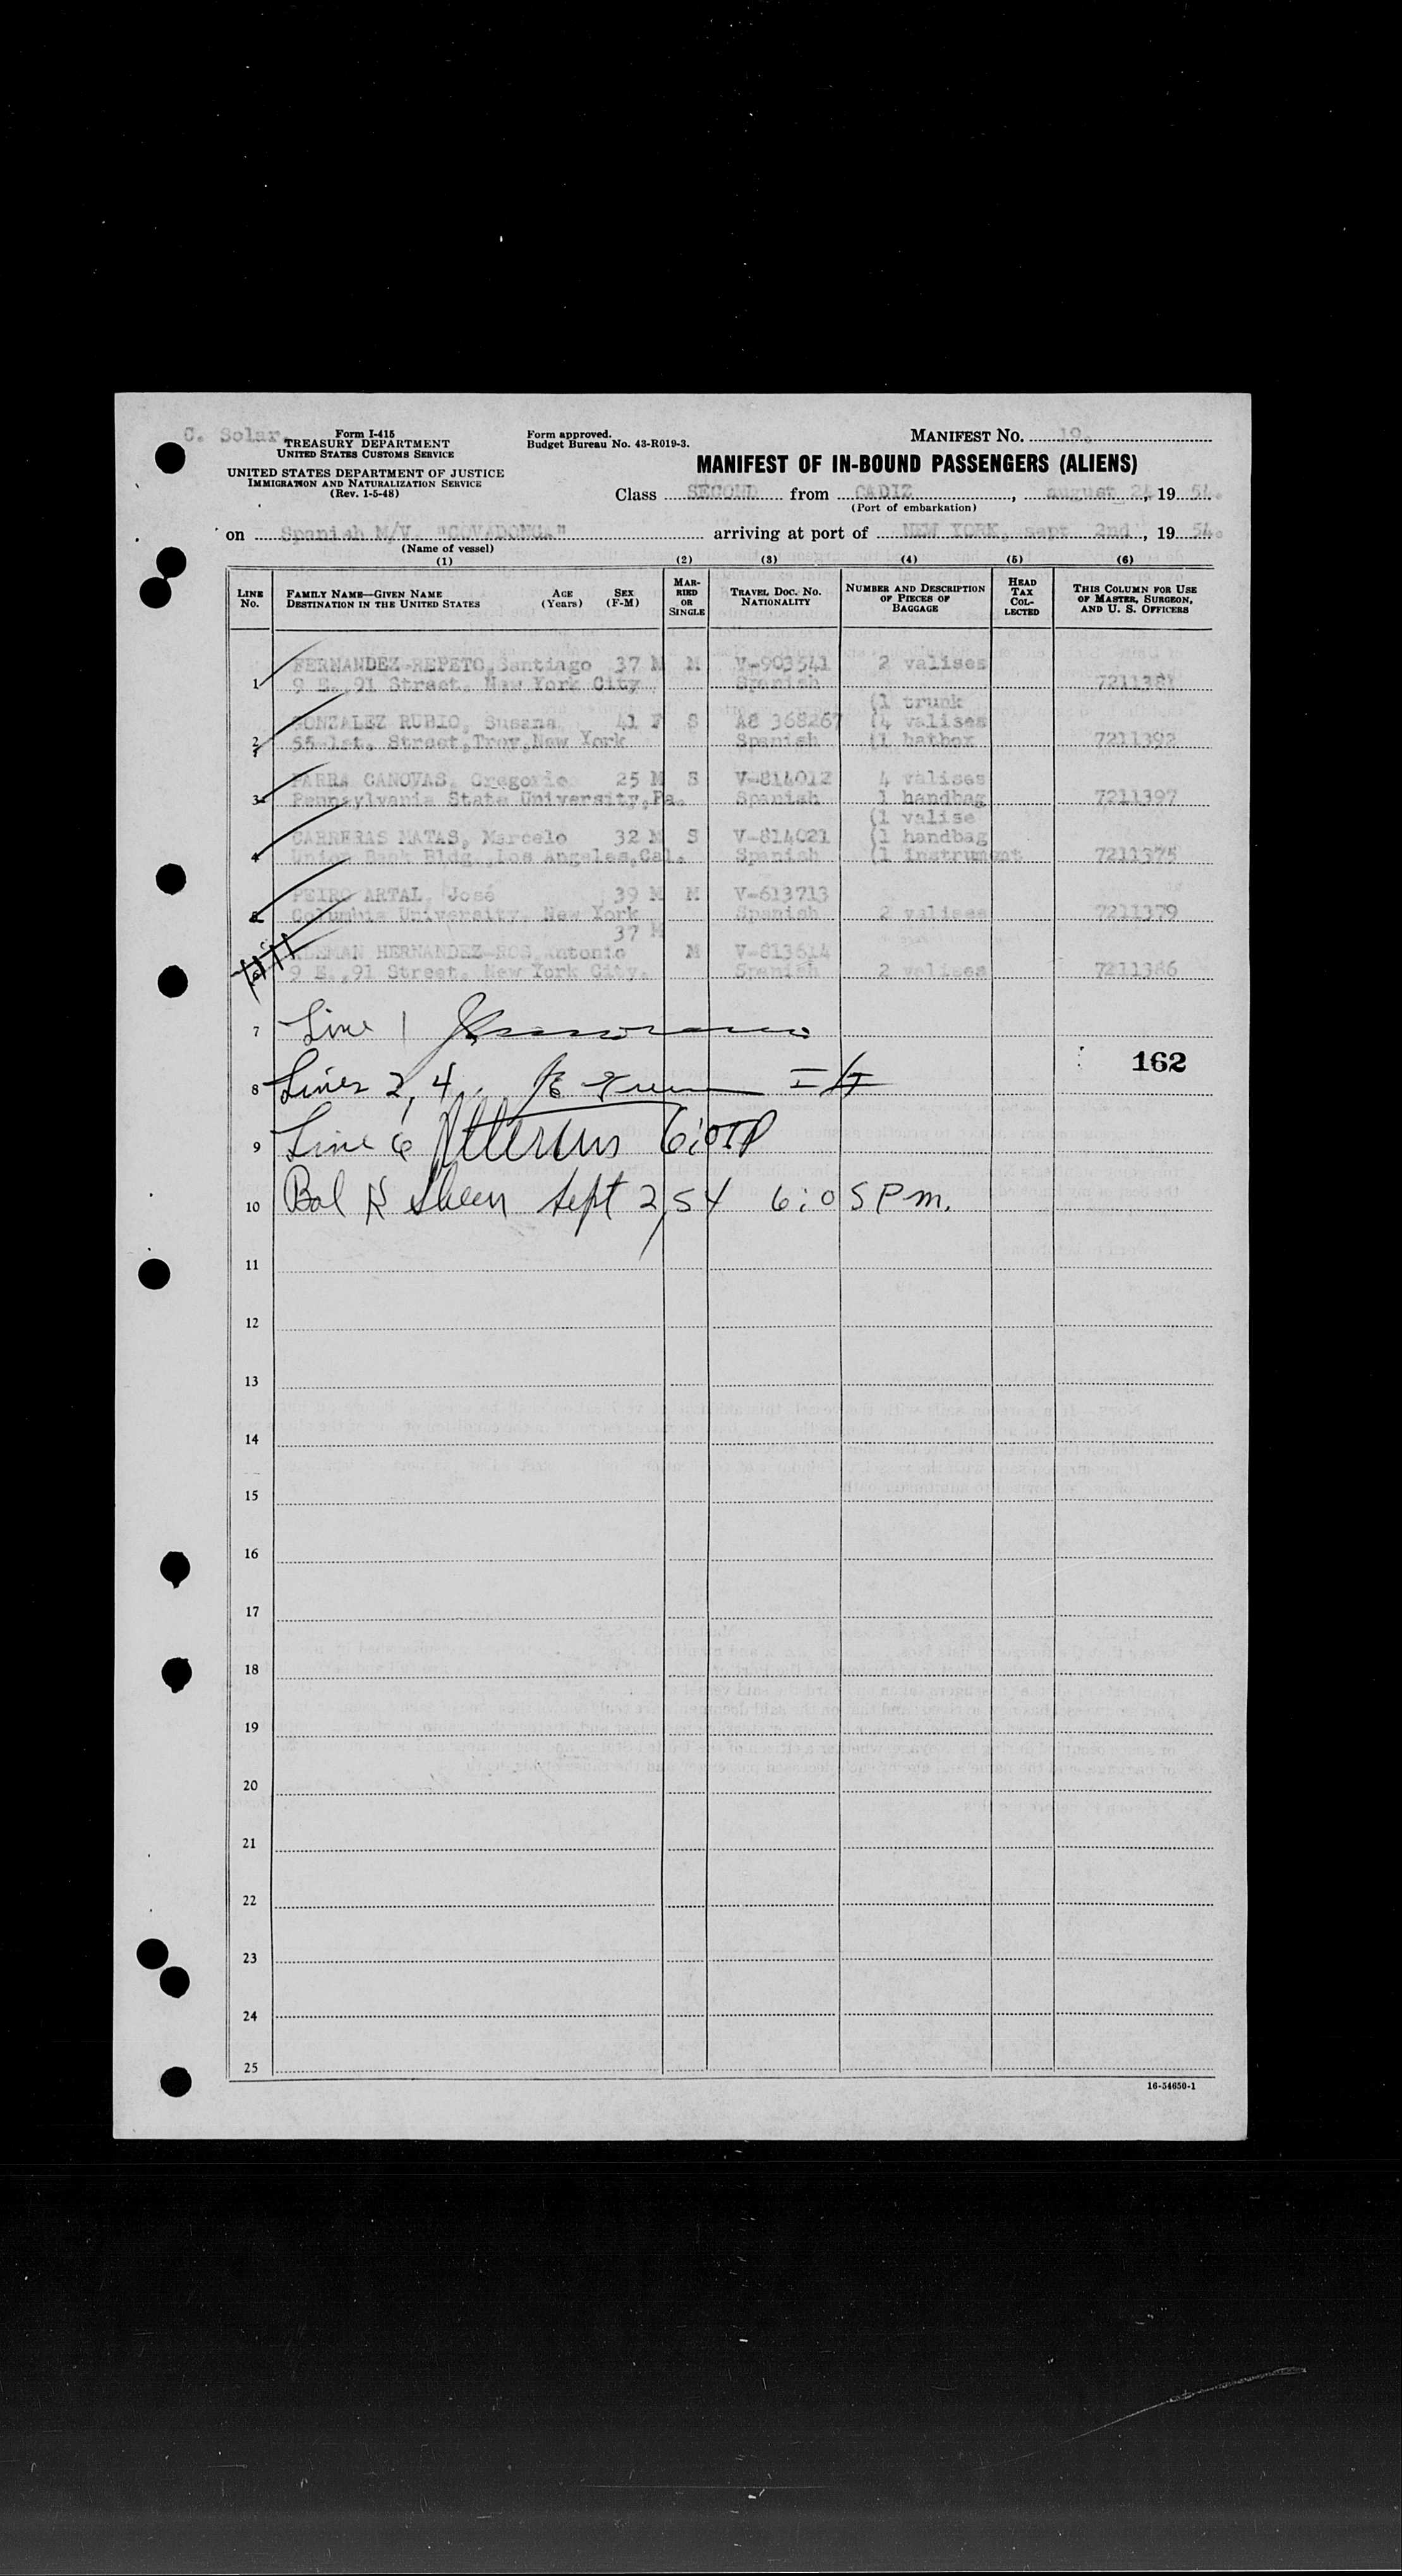 C. Solar.
Form I-415
TREASURY DEPARTMENT
UNITED STATES CUSTOMS SERVICE
UNITED STATES DEPARTMENT OF JUSTICE
IMMIGRATION AND NATURALIZATION SERVICE
(Rev. 1-5-48)
Form approved.
Budget Bureau No. 43-R019-3.
MANIFEST No. 19.
MANIFEST OF IN-BOUND PASSENGERS (ALIENS)
Class SECOND from CADIZ, august 24, 19 54.
(Port of embarkation)
on Spanish M/V. "COVADONGA" arriving at port of NEW YORK, sept 2nd, 19 54.
(Name of vessel)
(1) (2) (3) (4) (5) (6)
LINE No. FAMILY NAME—GIVEN NAME DESTINATION IN THE UNITED STATES AGE (Years) SEX (F-M) MARRIED OR SINGLE TRAVEL DOC. NO. NATIONALITY NUMBER AND DESCRIPTION OF PIECES OF BAGGAGE HEAD TAX COLLECTED THIS COLUMN FOR USE OF MASTER, SURGEON, AND U. S. OFFICERS
FERNANDEZ-REPETO, Santiago 37 M M V-903541 2 valises
1 9 E.,91 Street. New York City Spanish 7211381
(1 trunk
GONZALEZ RUBIO, Susana 41 F S A8 368267 (4 valises
2 55-1st. Street,Troy,New York Spanish (1 hatbox 7211392
PARRA CANOVAS, Gregorio 25 M S V-814012 4 valises
3 Pennsylvania State University,Pa. Spanish 1 handbag 7211397
(1 valise
CARRERAS MATAS, Marcelo 32 M S V-814021 (1 handbag
4 Union Bank Bldg.,Los Angeles,Cal. Spanish (1 instrument 7211375
PEIRO ARTAL, José 39 M M V-613713
5 Columbia University. New York Spanish 2 valises 7211379
37 M
ALEMAN HERNANDEZ-ROS, Antonio M V-813614
6 9 E.,91 Street. New York City. Spanish 2 valises 7211386
7 Line 1
162
8 Lines 2, 4
9 Line 6 6:05P
10 Bal Sheen Sept 2, 54 6:05 Pm.
11
12
13
14
15
16
17
18
19
20
21
22
23
24
25
16-54650-1